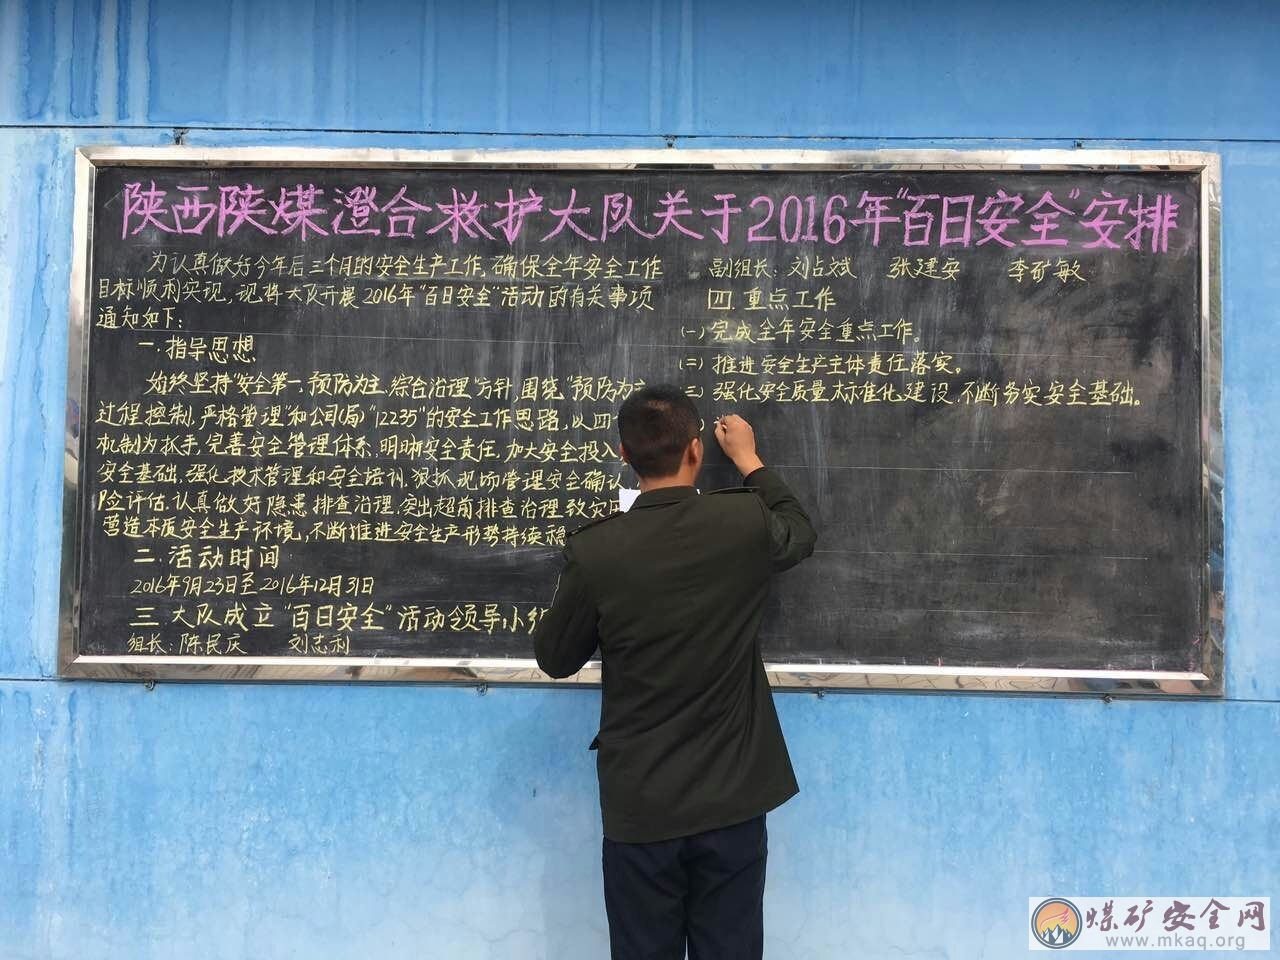 陕西陕煤澄合救护大队关于2016年"百日安全"安排
为认真做好今年后三个月的安全生产工作,确保全年安全工作
目标顺利实现,现将大队开展2016年"百日安全"活动的有关事项
通知如下:
一.指导思想
始终坚持"安全第一.预防为主.综合治理"方针,围绕"预防为主
过程控制.严格管理"和公司(局)"12235"的安全工作思路,以四
机制为抓手,完善安全管理体系.明晰安全责任.加大安全投入
安全基础.强化技术管理和安全培训.狠抓现场管理安全确认
险评估.认真做好隐患排查治理.突出超前排查治理致灾因
营造本质安全生产环境,不断推进安全生产形势持续稳
二.活动时间
2016年9月23日至2016年12月31日
三.大队成立"百日安全"活动领导小组
组长:陈民庆 刘志利
副组长:刘占斌 张建安 李矿敏
四.重点工作
(一)完成全年安全重点工作。
(二)推进安全生产主体责任落实。
(三)强化安全质量标准化建设.不断务实安全基础。
煤矿安全网
www.mkaq.org